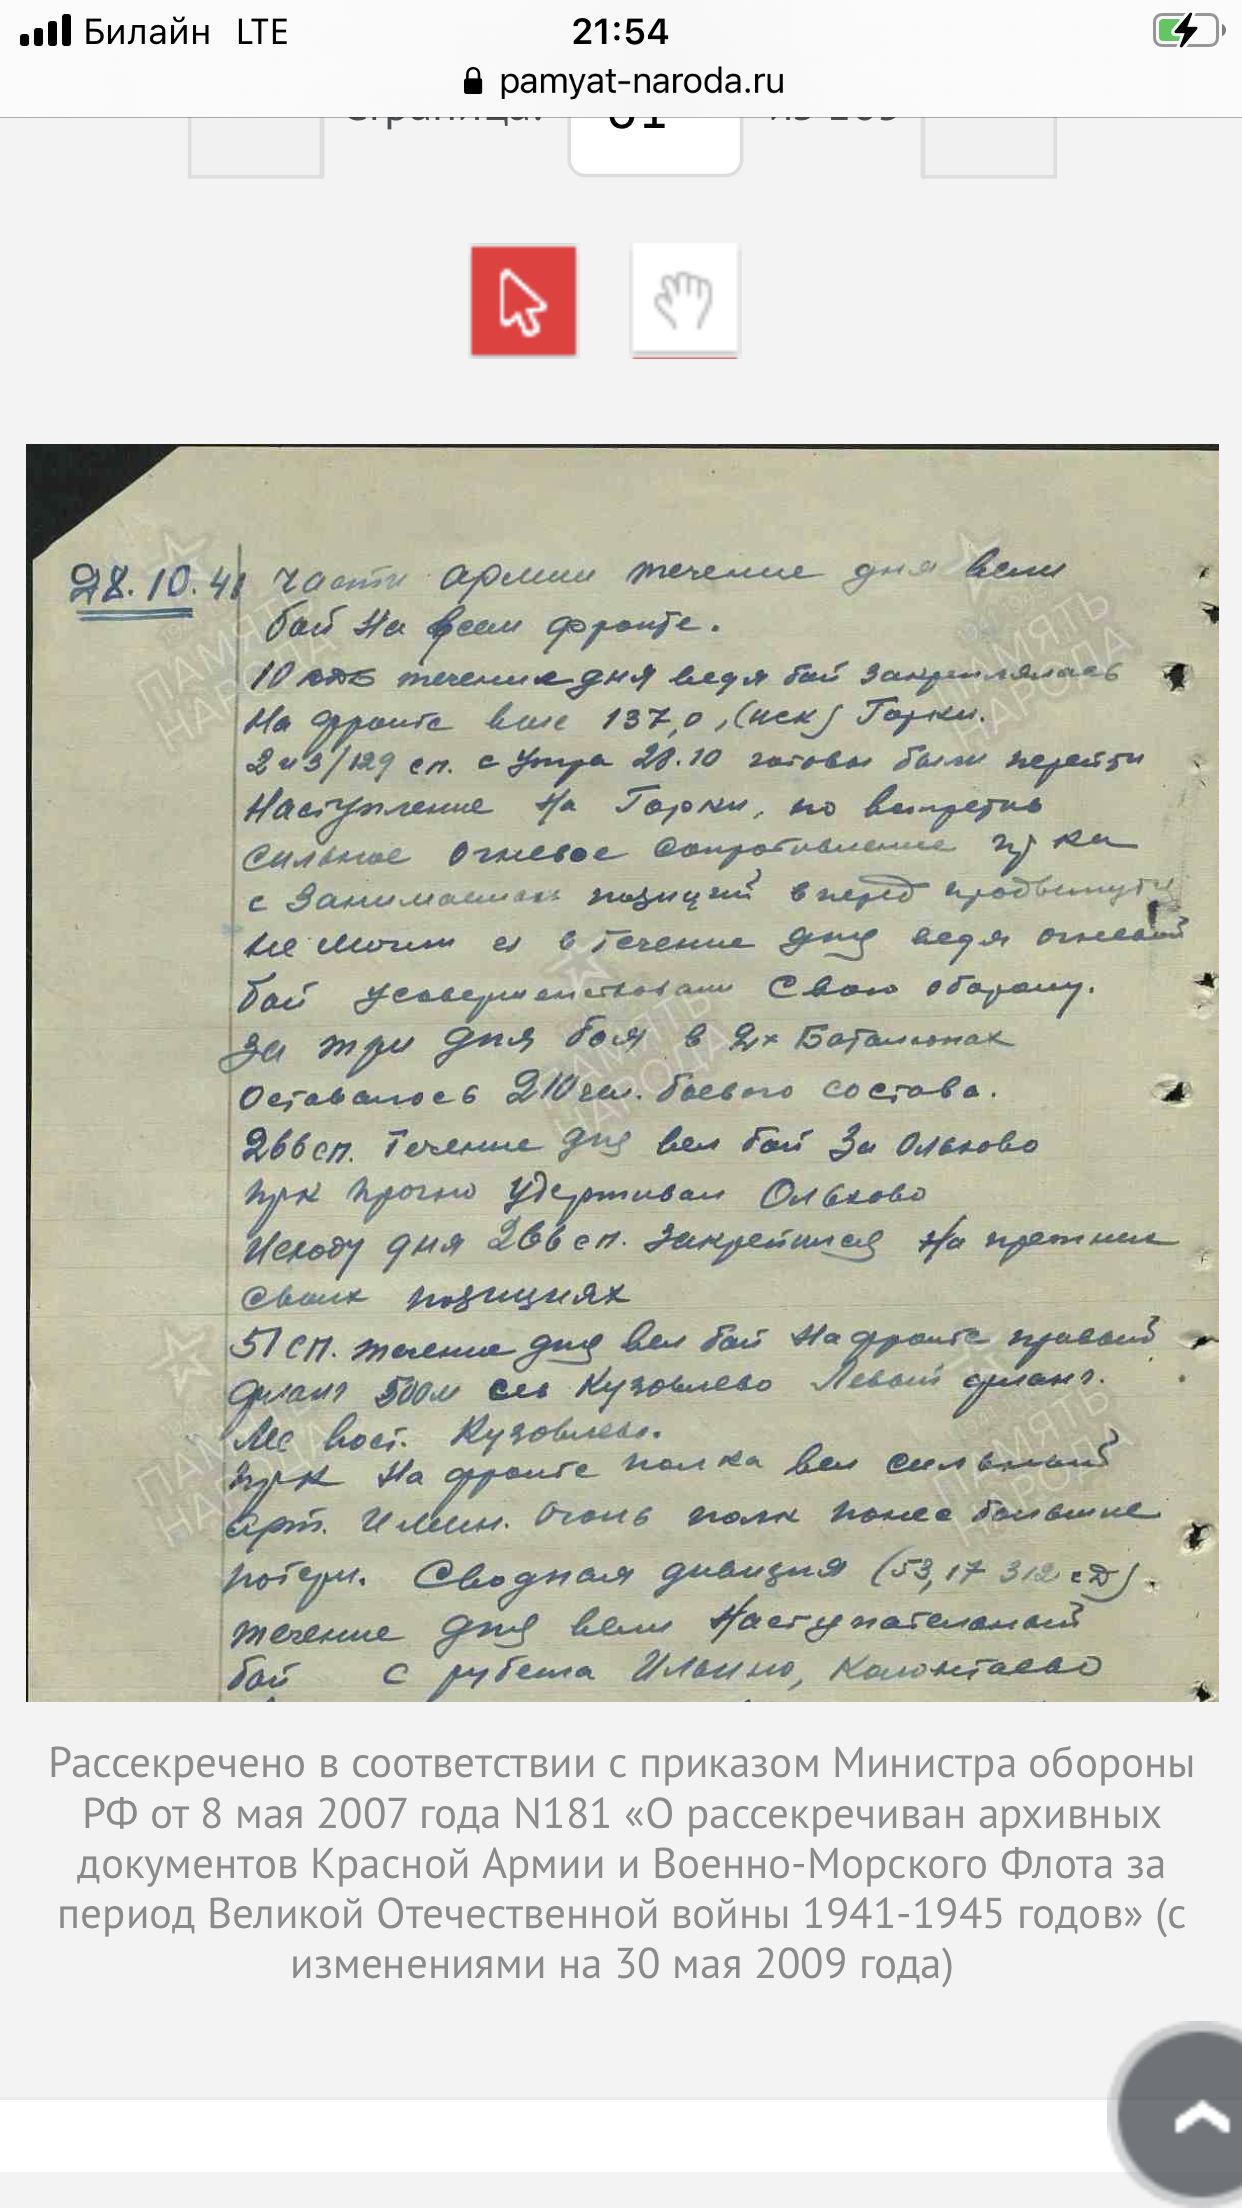 Билайн LTE 21:54
pamyat-naroda.ru
28.10.41 Части армии течение дня вели
бой на всем фронте.
10 течение дня ведя бой закреплялась
на фронте выс 137,0, (иск) Горки.
2 и 3/129 сп. с утра 28.10 готовы были перейти
Наступление на Горки, но встретив
сильное огневое сопротивление пр-ка
с занимаемых позиций вперед продвинуться
не могли и в течение дня ведя огневой
бой усовершенствовали свою оборону.
За три дня боя в 2х Батальонах
Оставалось 210 чел. боевого состава.
266 сп. течение дня вел бой за Ольхово
пр-к прочно удерживал Ольхово
Исходу дня 266 сп. закрепился на прежних
своих позициях
51 сп. течение дня вел бой на фронте правый
фланг 500м сев Кузовлево Левый фланг.
Лес вост. Кузовлево.
пр-к на фронте полка вел сильный
арт. и мин. огонь полк понес большие
потери. Сводная дивизия (53, 17 312 сд)
течение дня вели наступательный
бой с рубежа Ильино, Колонтаево
Рассекречено в соответствии с приказом Министра обороны
РФ от 8 мая 2007 года N181 «О рассекречиван архивных
документов Красной Армии и Военно-Морского Флота за
период Великой Отечественной войны 1941-1945 годов» (с
изменениями на 30 мая 2009 года)